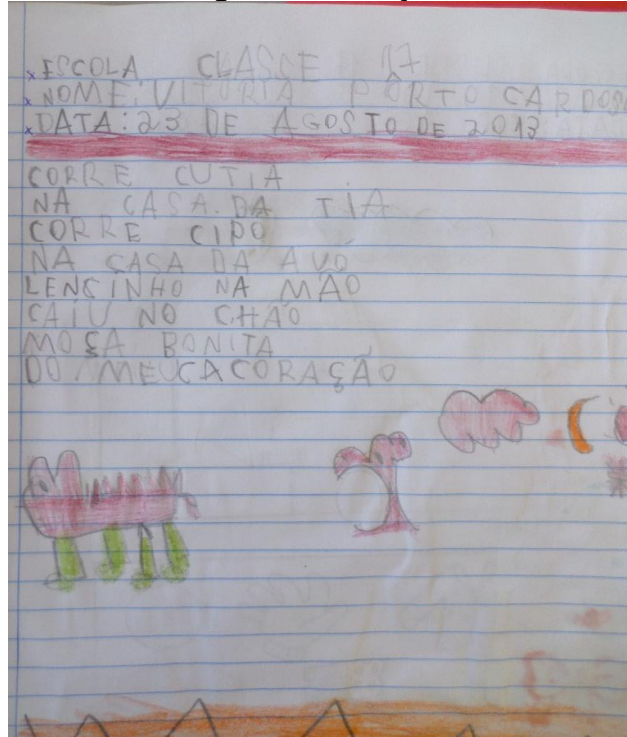 x ESCOLA CLASSE 17
x NOME: VITORIA PÔRTO CARDOS
x DATA: 23 DE AGOSTO DE 2013
CORRE CUTIA
NA CASA. DA TIA
CORRE CIPÓ
NA CASA DA AVÓ
LENCINHO NA MÃO
CAIU NO CHÃO
MOÇA BONITA
DO MEU CACORAÇÃO